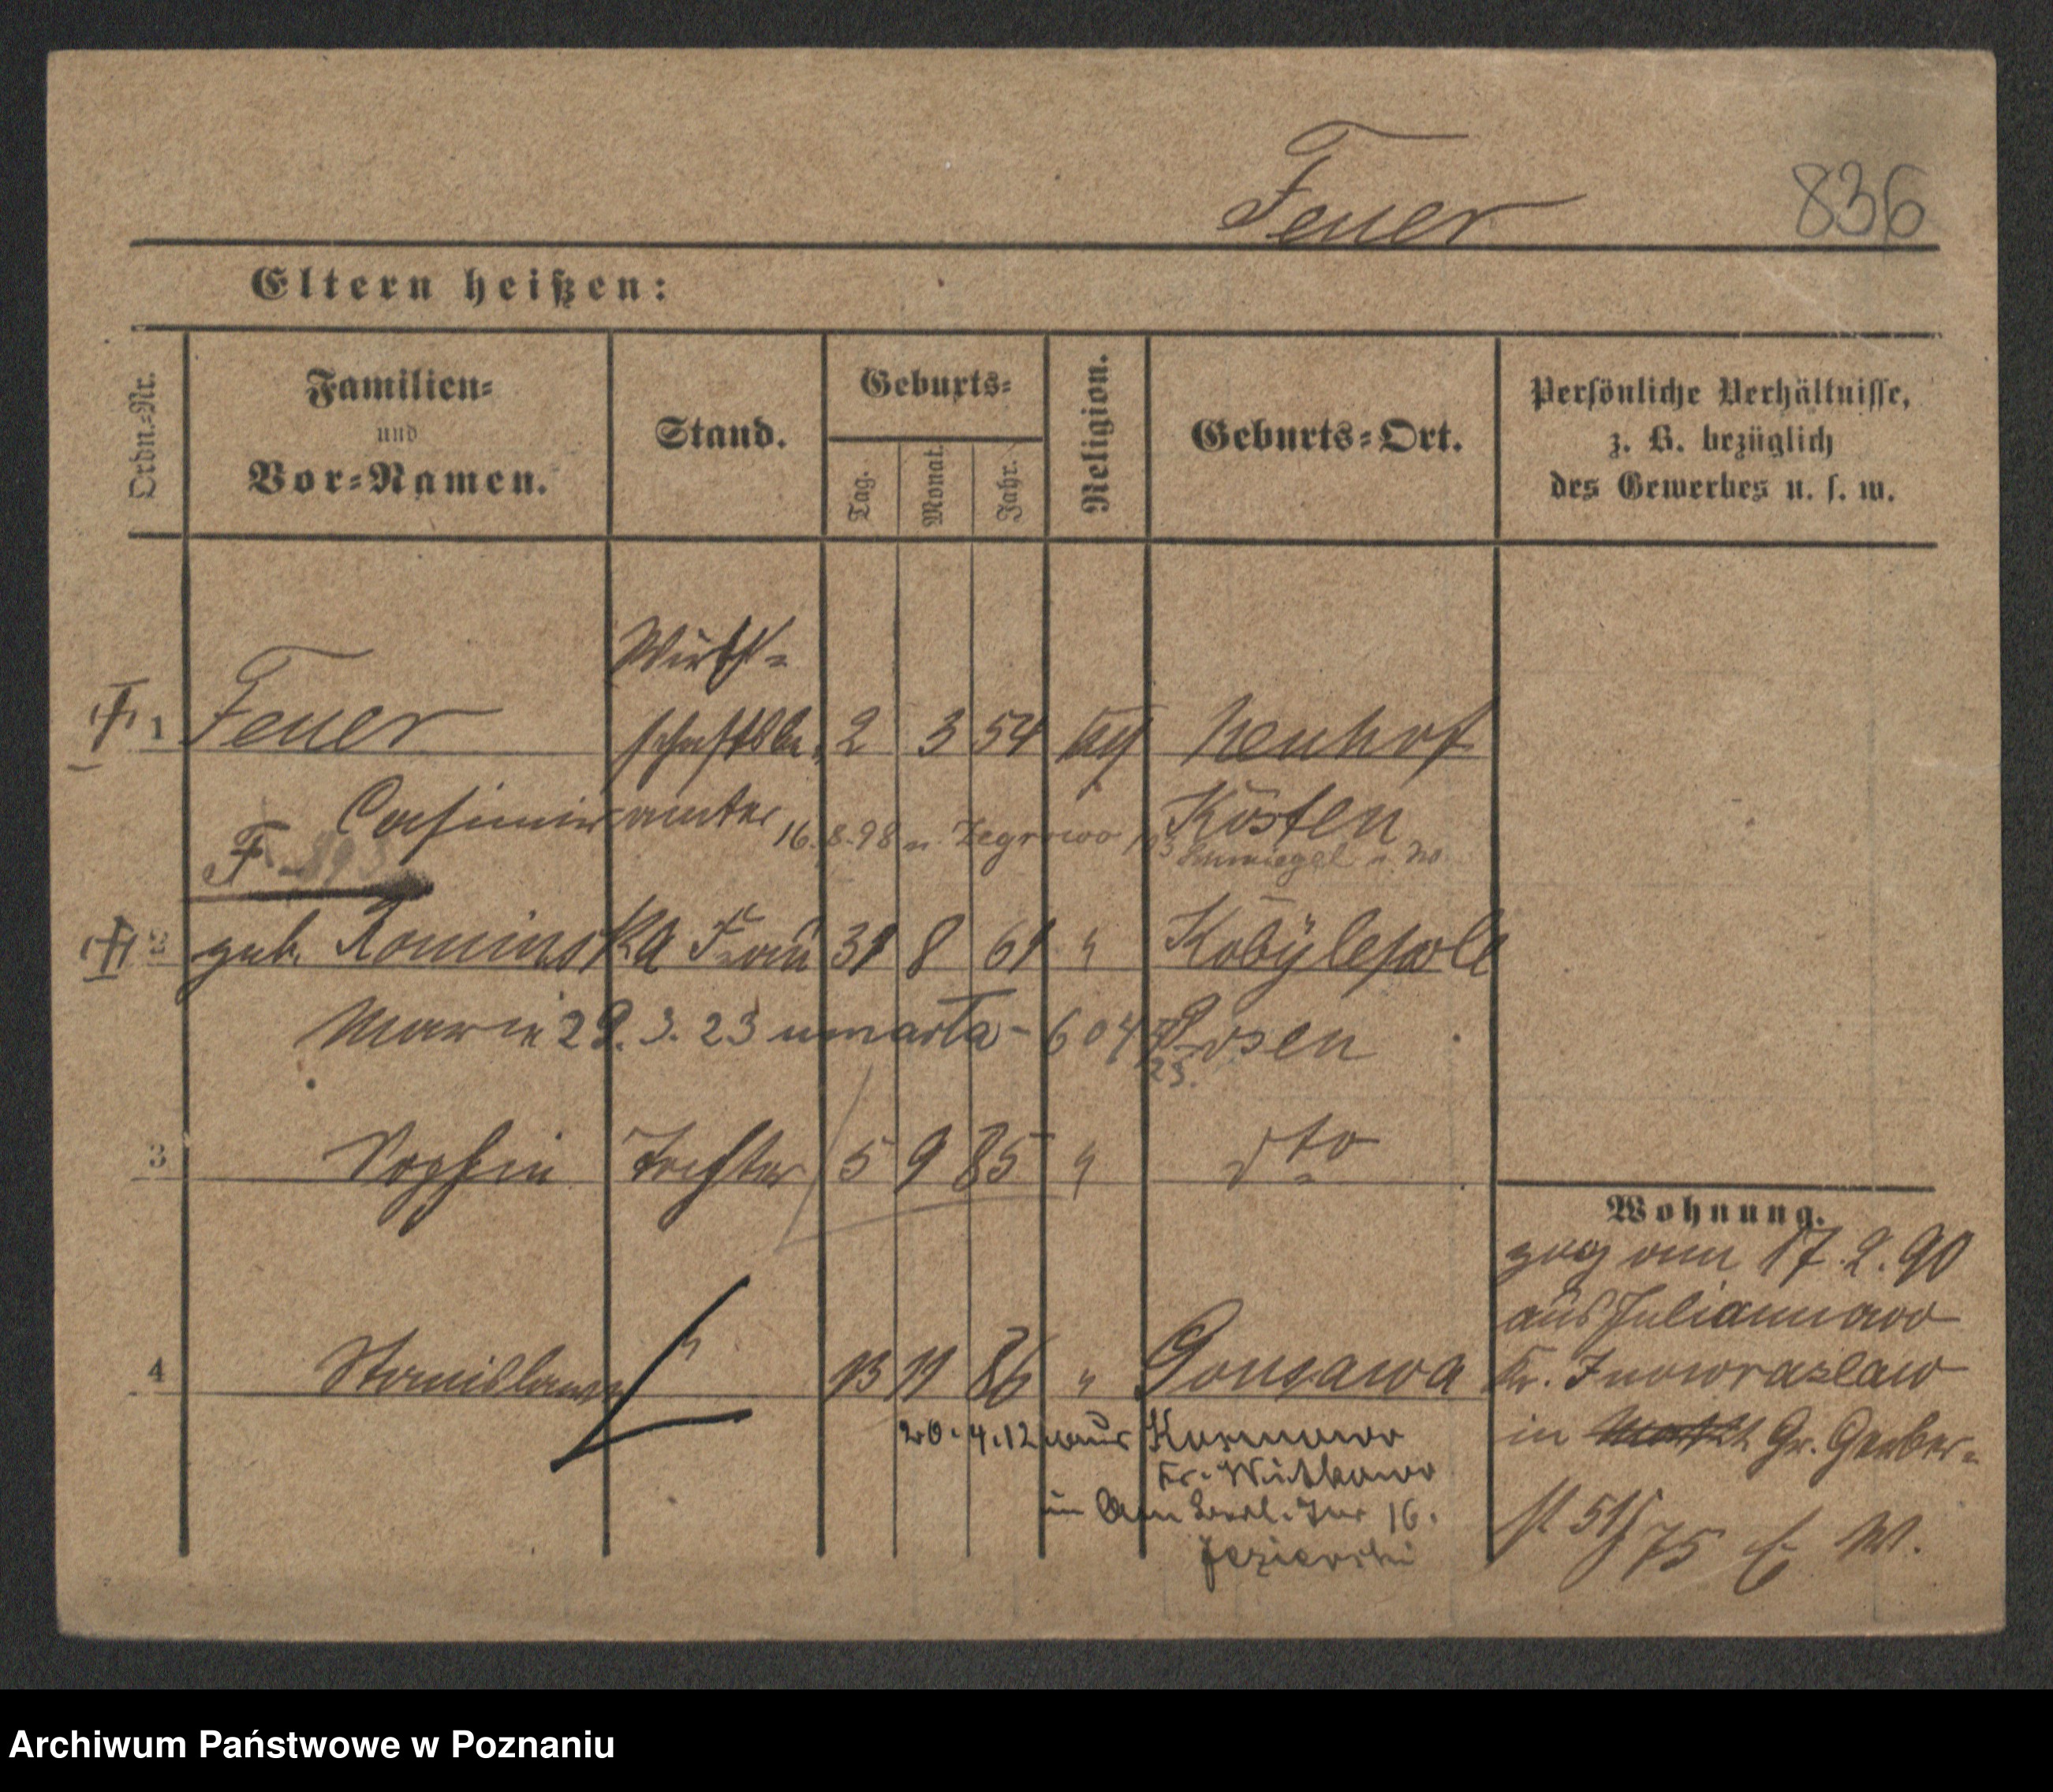 Feuer 836
Eltern heißen:
Ordn.-Nr.
Familien-
und
Vor-Namen.
Stand.
Geburts-
Tag.
Monat.
Jahr.
Religion.
Geburts-Ort.
Persönliche Verhältnisse,
z. B. bezüglich
des Gewerbes u. s. w.
Wirth-
1 Feuer schaftsbe- 2 3 54 kath Neuhof
Casimir amter Kosten
16.8.98 n. Zegrowo Schmiegel
F
2 geb. Rominska Frau 31 8 61 " Kobylepole
Marie 29.3.23 umarła - 604 Posen
23.
3 Sophie Tochter 5 9 85 " dto
4 Stanislawa " 13 11 86 " Gonsawa
20.4.12 aus
Kr. Witkowo
in
Jezierski
Wohnung.
zog am 17.2.90
aus Juliannowo
Kr. Inowrazlaw
in Gr. Gerber-
st 51/75 E W.
Archiwum Państwowe w Poznaniu